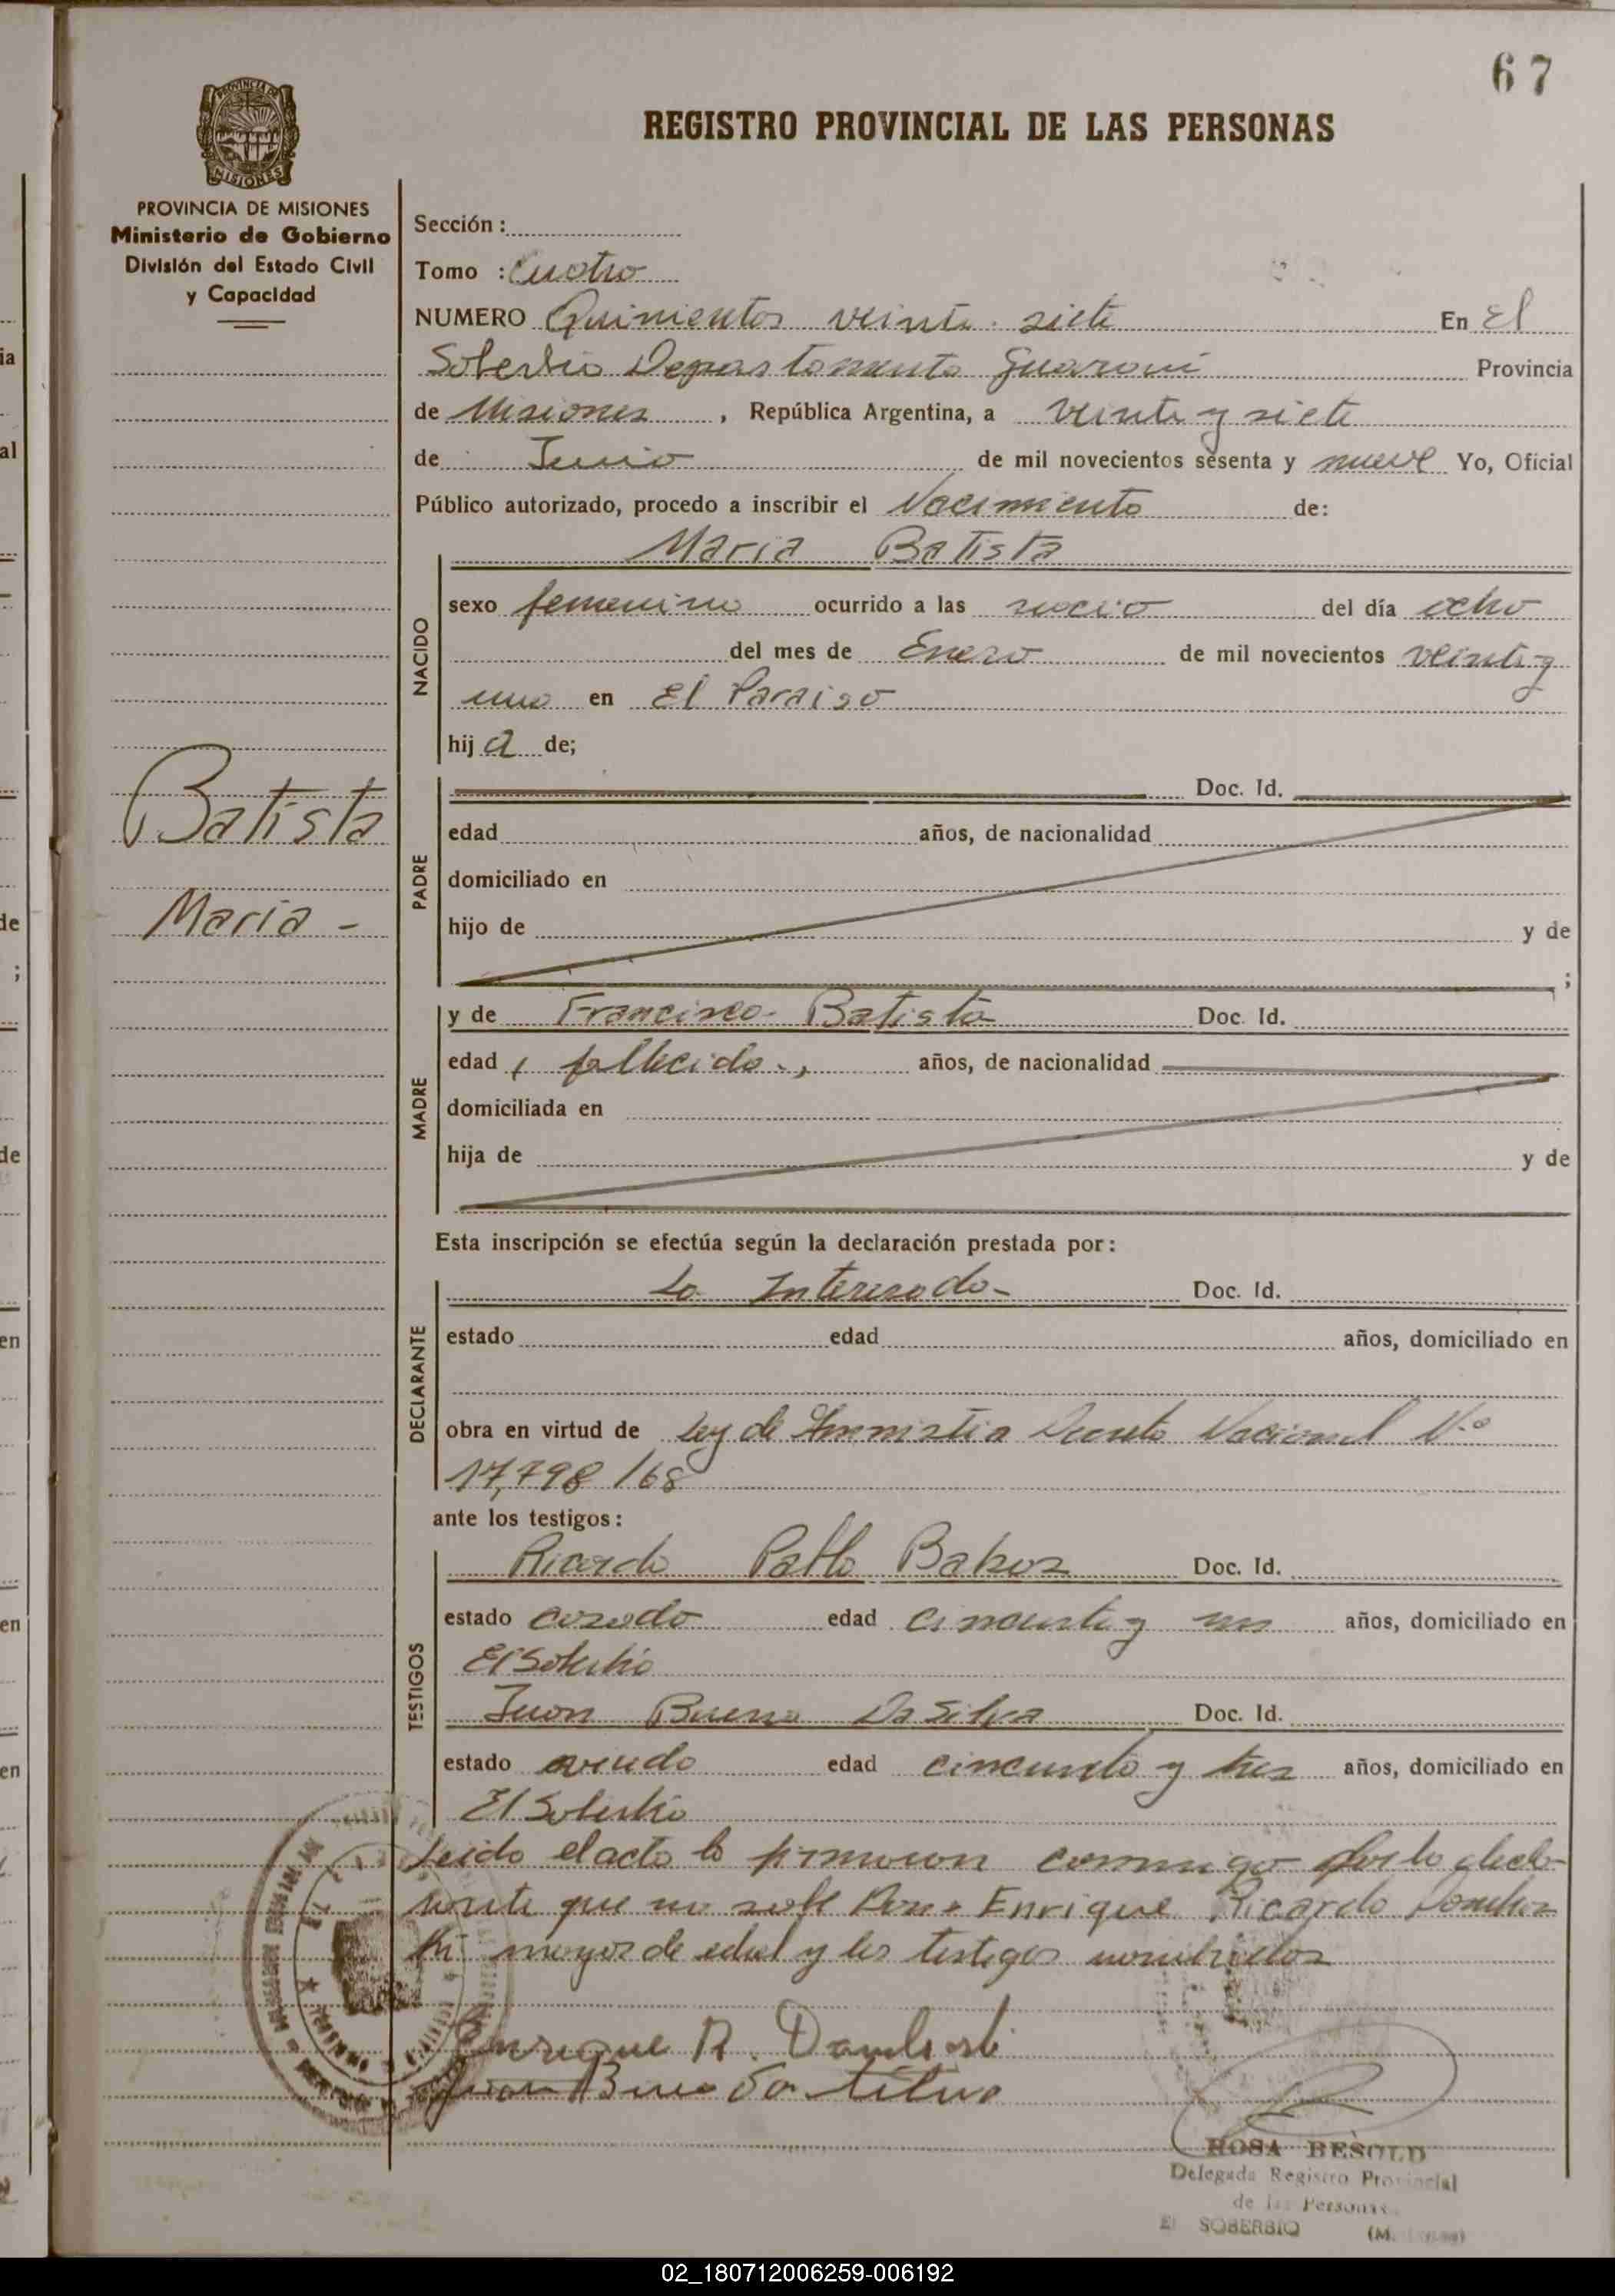 67
REGISTRO PROVINCIAL DE LAS PERSONAS
PROVINCIA DE MISIONES
Ministerio de Gobierno
División del Estado Civil
y Capacidad
Sección :
Tomo : Cuatro
NUMERO Quinientos veinte siete En El
Soberbio Departamento Guarani Provincia
de Misiones, República Argentina, a veinte y siete
de Junio de mil novecientos sesenta y nueve Yo, Oficial
Público autorizado, procedo a inscribir el Nacimiento de:
Maria Batista
NACIDO
sexo femenino ocurrido a las del día ocho
del mes de Enero de mil novecientos veinte y
uno en El Paraiso
hij a de;
Batista
Maria -
PADRE
Doc. Id.
edad años, de nacionalidad
domiciliado en
hijo de y de
;
MADRE
y de Francisca Batista Doc. Id.
edad , fallecida , años, de nacionalidad
domiciliada en
hija de y de
Esta inscripción se efectúa según la declaración prestada por:
DECLARANTE
La Interesada - Doc. Id.
estado edad años, domiciliado en
obra en virtud de Ley de Amnistia Decreto Nacional N.º
17,798/68
ante los testigos:
TESTIGOS
Ricardo Pablo Doc. Id.
estado casado edad cincuenta y un años, domiciliado en
El Soberbio
Juan Bueno Da Silva Doc. Id.
estado viudo edad cincuenta y tres años, domiciliado en
El Soberbio
Leido el acta la firmaron conmigo por la decla-
rante que no sabe Enrique Ricardo
mayor de edad y los testigos nombrados
Enrique R.
Juan Bueno da Silva
ROSA BESOLD
Delegada Registro Provincial
de las Personas
El SOBERBIO
02_180712006259-006192